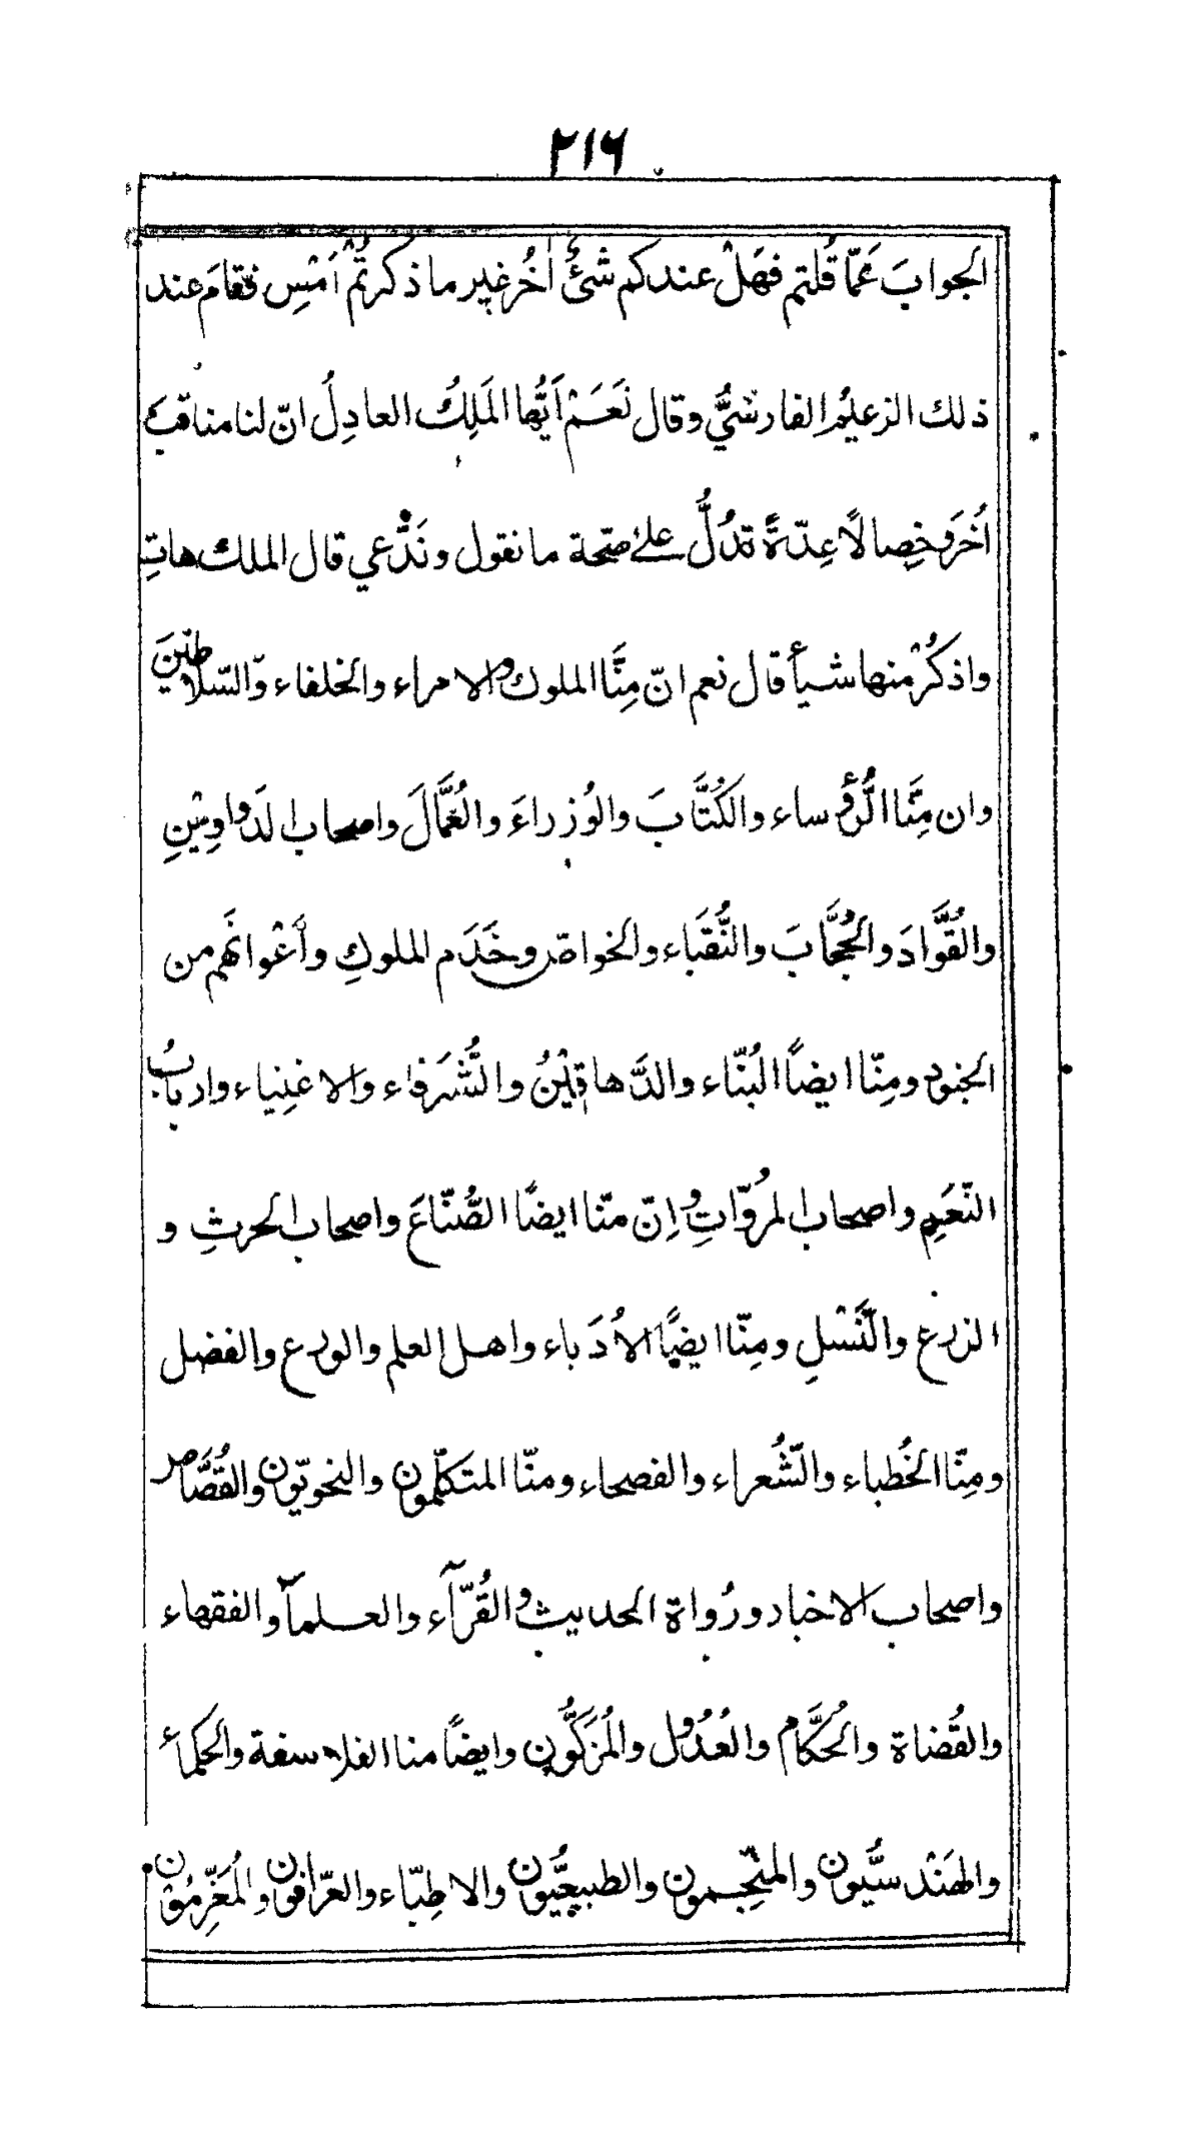 ٢١٦
الجوابَ عَمّا قُلتم فهَلْ عندكم شئٌ اٰخُر غير ما ذكرتُمْ اَمْسِ فقامَ عند
ذلك الزعيمُ الفارسيُّ وقال نَعَمْ اَيُّها المَلِكُ العادِلُ انّ لنا مناقبَ
اُخَرَ وخِصالاً عِدّةً تدُلُّ علىٰ صحّة ما نقول ونَدَّعي قال الملك هاتِ
واذكُرْ منها شيأً قال نعم انّ مِنَّا الملوك والامراء والخلفاء والسّلاطينَ
وان مِنَّا الرُّؤساء والكُتَّابَ والوُزراءَ والعُمَّالَ واصحاب الدَواوِيْنِ
والقُوَّادَ والحُجَّابَ والنُّقَباء والخواصّ وخَدَم الملوكِ وأعْوانَهم من
الجنود ومِنّا ايضاً البُنّاء والدَّهاقِيْنُ والشُّرَفاء والاغنِياء وارباب
النّعَمِ واصحاب المرُوّاتِ واِنّ منّا ايضًا الصُّنّاعَ واصحاب الحرثِ و
الزرع والنَّسْلِ ومِنّا ايضًا الأُدَباء واهل العلم والورع والفضل
ومِنّا الخُطباء والشُّعراء والفصحاء ومنّا المتكلّمون والنحويّون والقُصَّاص
واصحاب الاخبار ورُواة الحديث والقُرّآء والعلمآ والفقهاء
والقُضاة والحُكَّام والعُدُول والمُزَكُّون وايضًا منا الفلاسفة والحكماء
والهَنْدسيُّون والمنجّمون والطبيعيُّون والاطِبّاء والعرّافون والمُعَزِّمُوْن